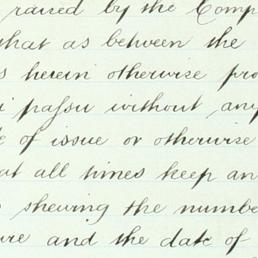 raised by the Comp
that as between the
s herein otherwise pro
i passu without any
of issue or otherwise
at all times keep an
shewing the numbe
ure and the date of